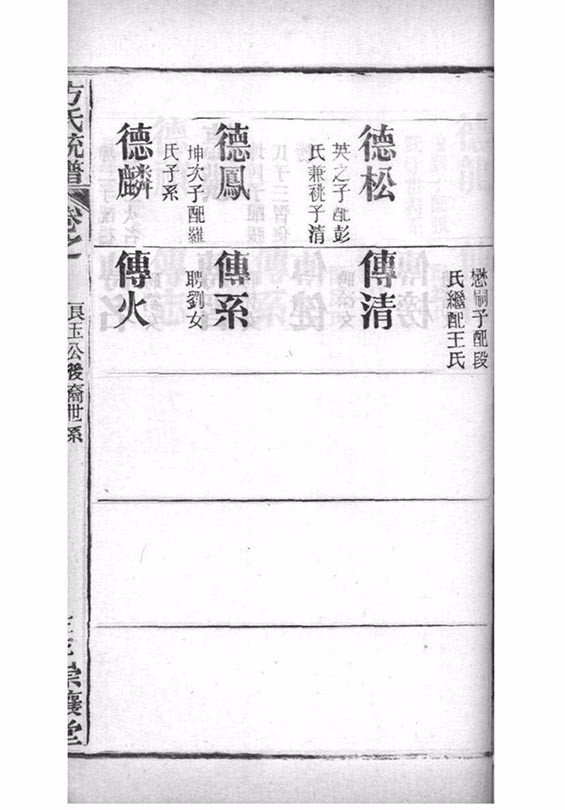 德松
英之子配彭
氏兼祧子清
德鳳
坤次子配羅
氏子系
德麟
懋嗣子配段
氏繼配王氏
傳清
傳系
聘劉女
傳火
方氏統譜
卷之
良玉公後裔世系